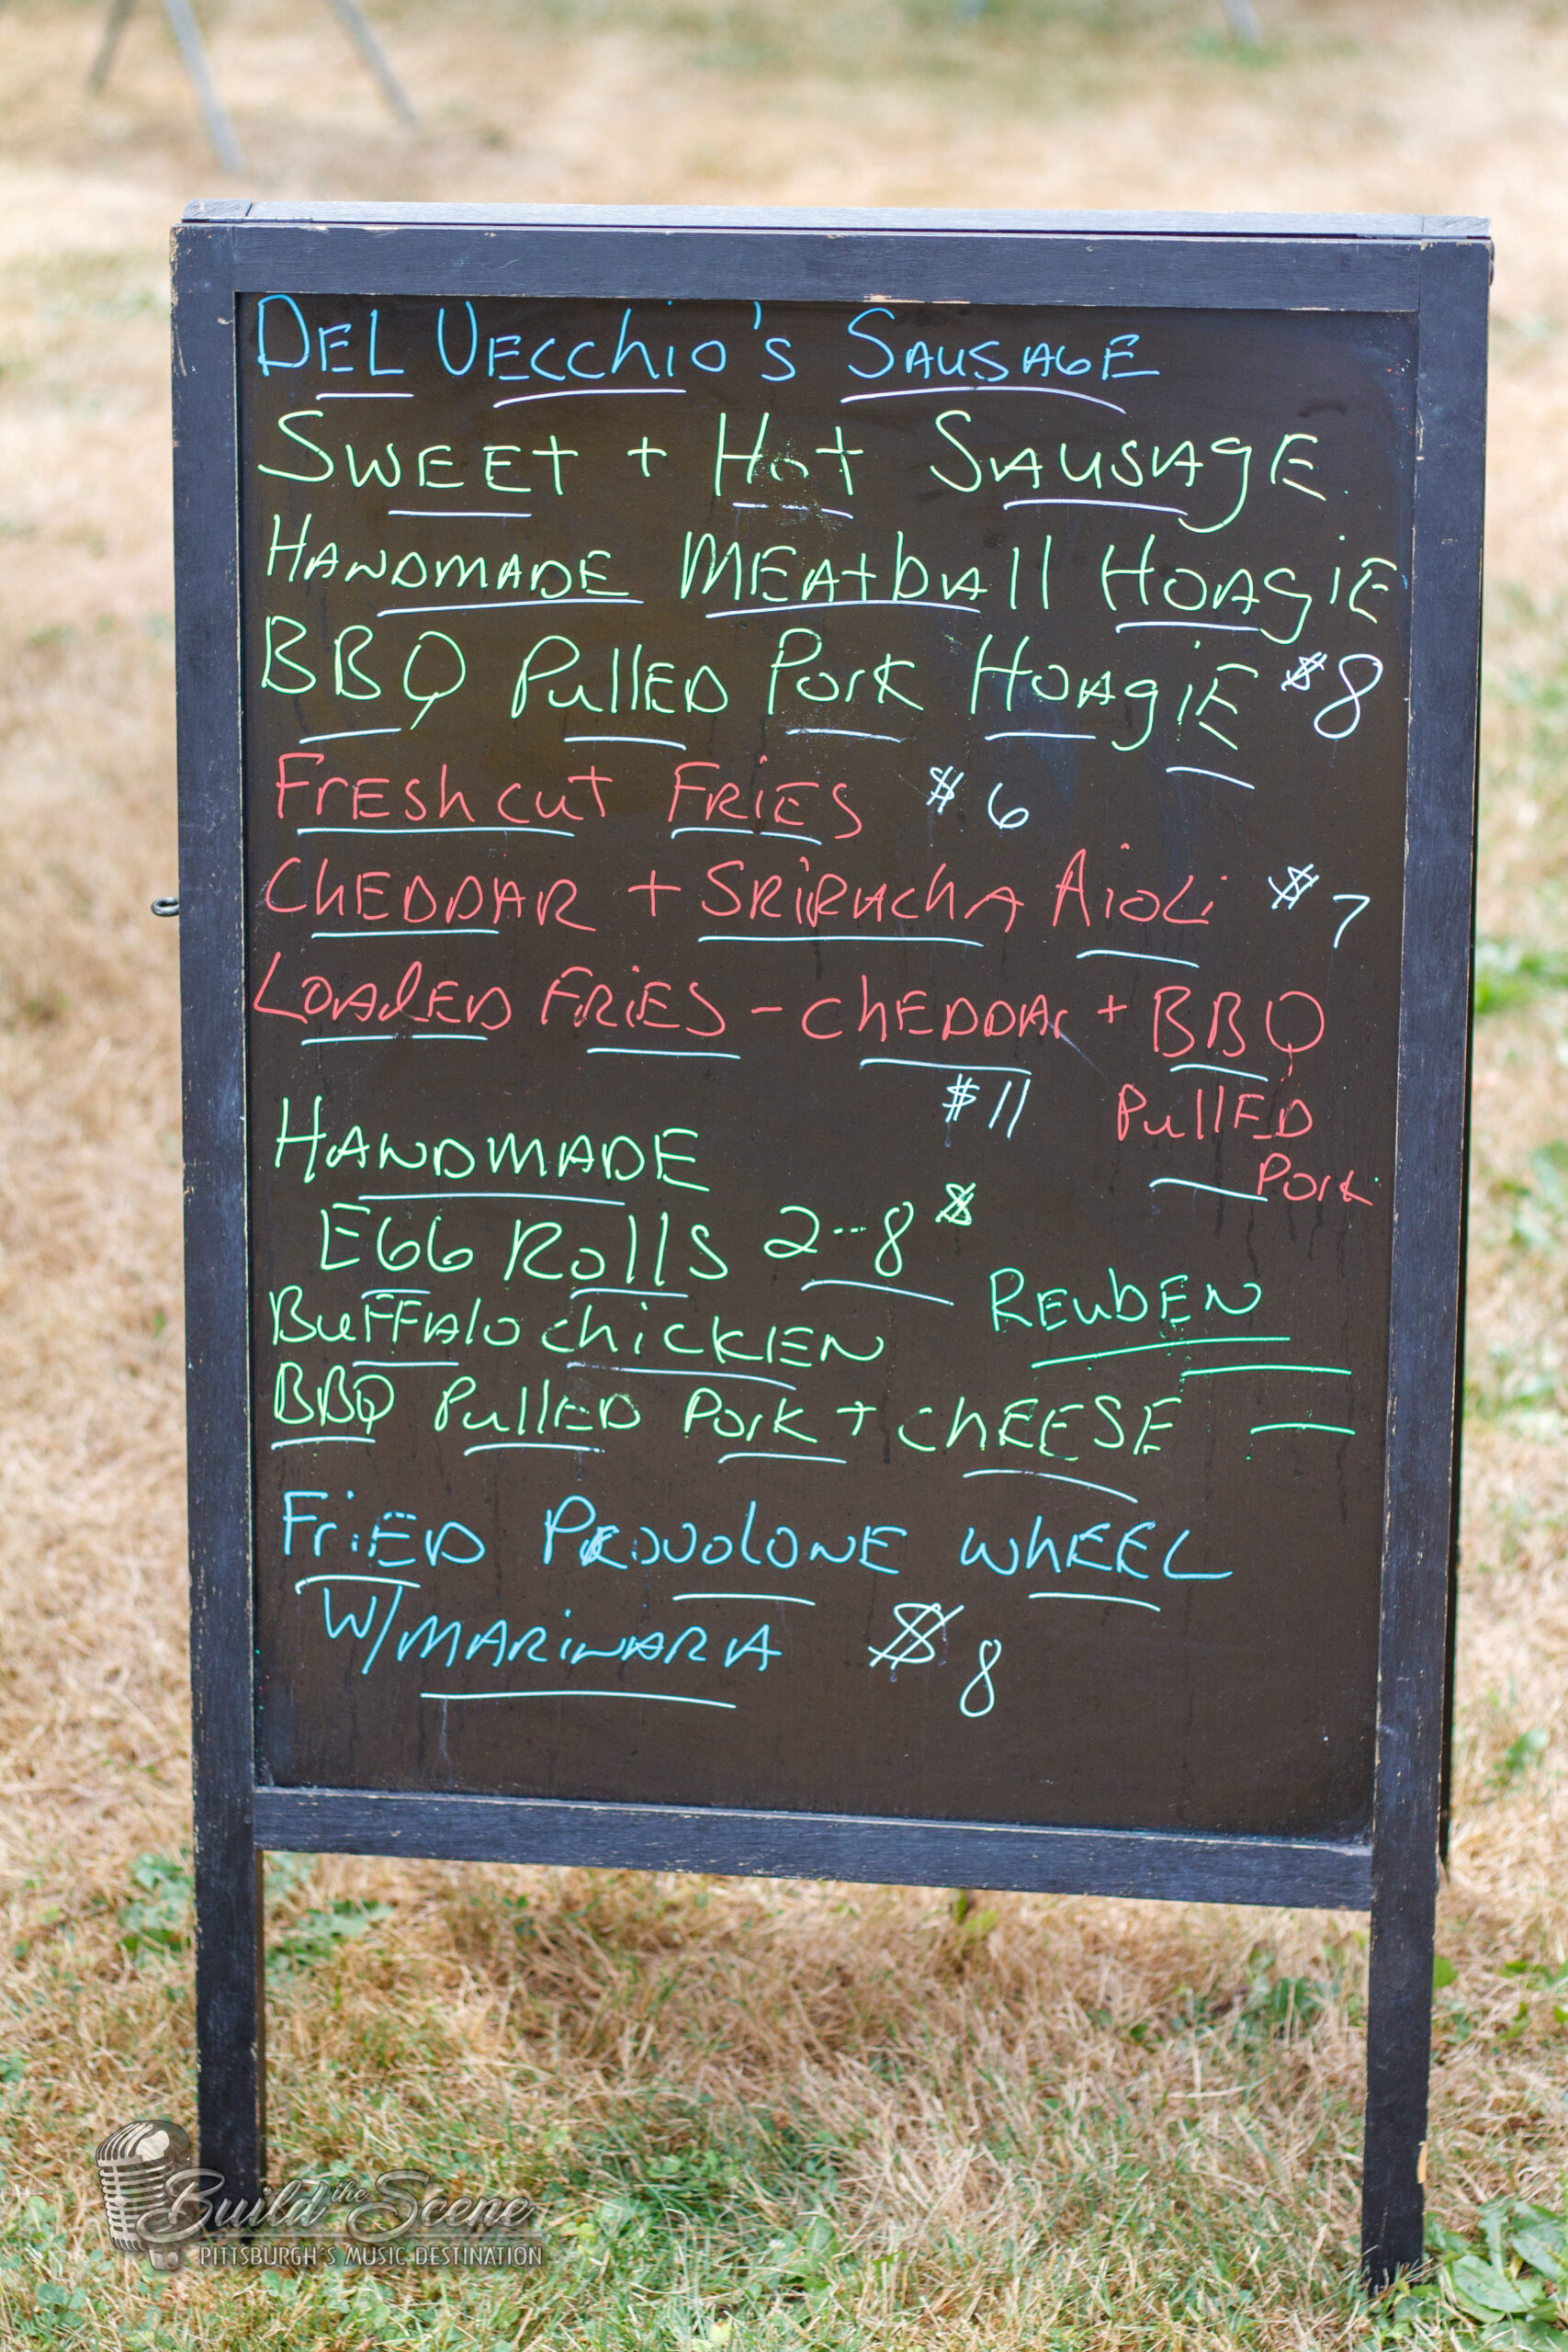 DEL VECChio's SAUSAGE
SWEET + Hot SAUSAGE
HANDMADE MEAtbAll HOAgiE
BBQ PullED Pork HOAgiE $8
FrEsh cut FRiES $6
ChEDDAR + SRiRAchA AioLi $7
LOADED FRiES - chEDDAr + BBQ
$11 PullED
Pork
HANDMADE
EGG Rolls 2--8$
REubEN
BuFFAlo chickEN
BBQ PullED Pork + chEESE
FriED PROVOlONE whEEL
W/MARiNARA $8
Build the Scene
PITTSBURGH'S MUSIC DESTINATION